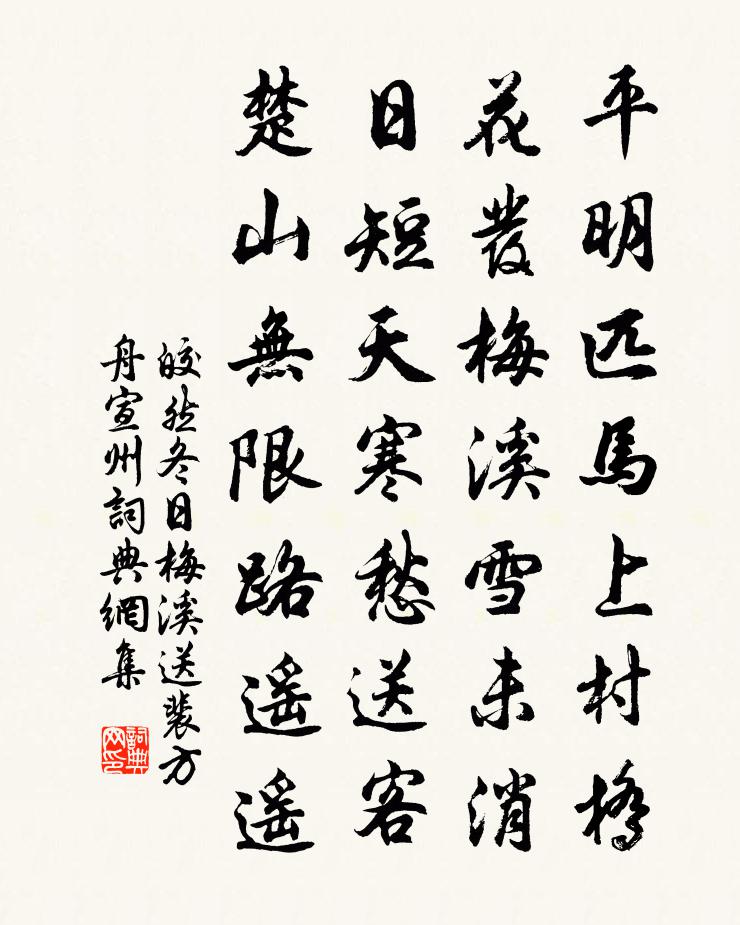 平明匹馬上村橋
花發梅溪雪未消
日短天寒愁送客
楚山無限路遥遥
皎然冬日梅溪送裴方
舟宣州詞典網集
詞典
网印